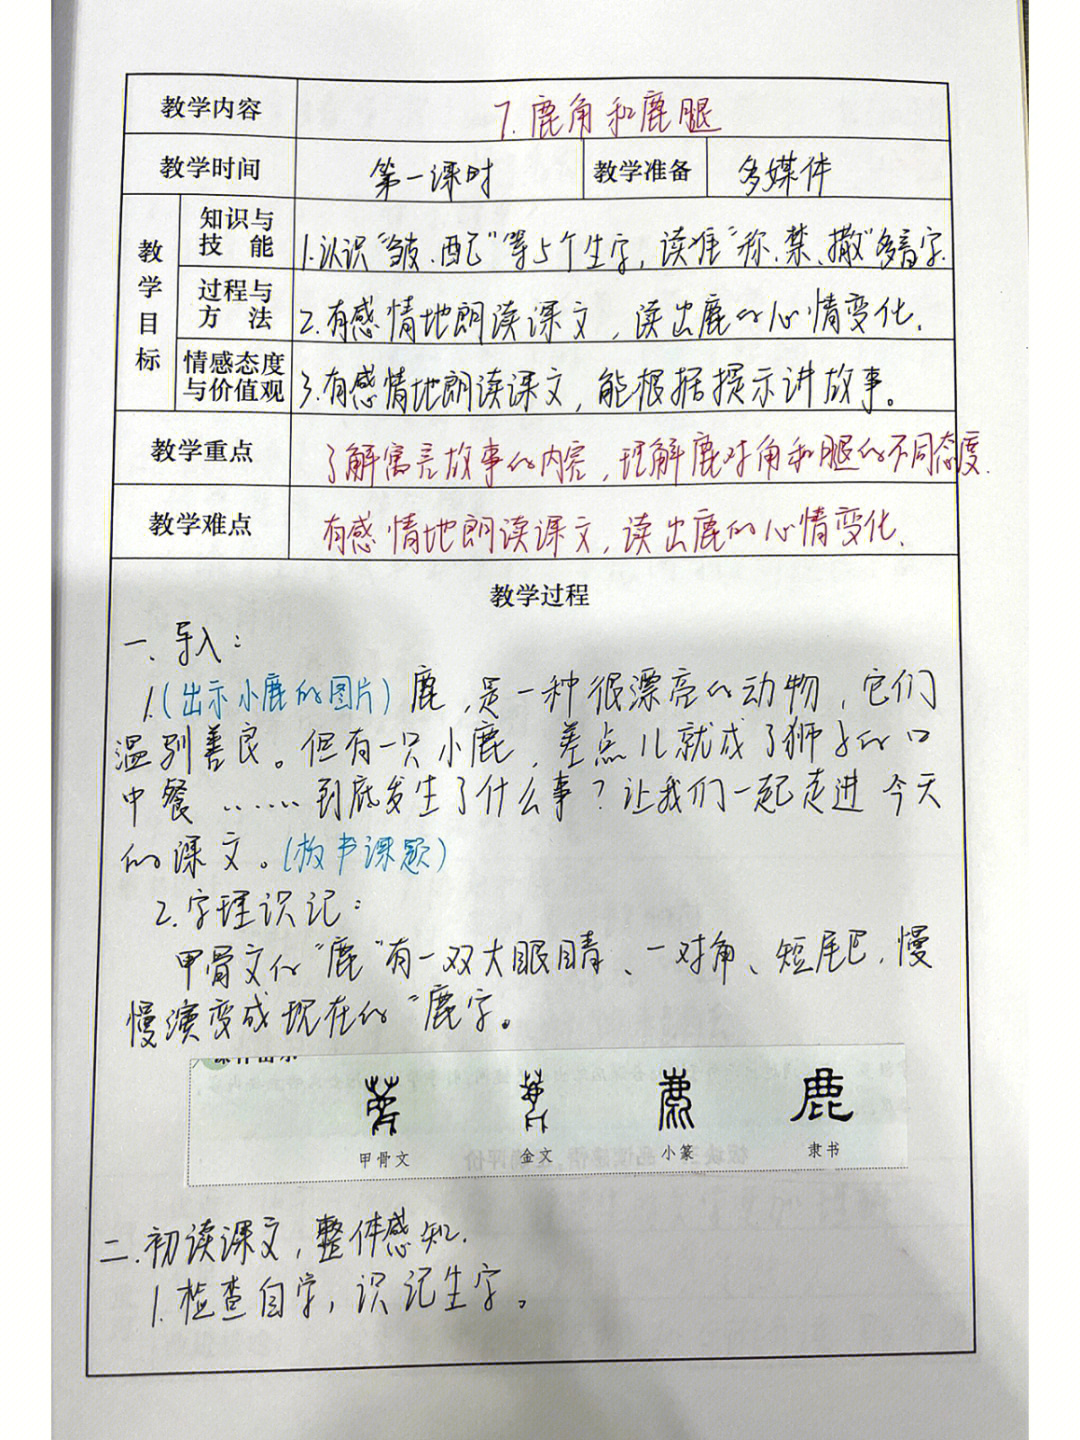 教学内容 7.鹿角和鹿腿
教学时间 第一课时 教学准备 多媒体
教学目标
知识与技能 1.认识“皱、配”等5个生字,读准“称、禁、撒”多音字.
过程与方法 2.有感情地朗读课文,读出鹿的心情变化.
情感态度与价值观 3.有感情地朗读课文,能根据提示讲故事。
教学重点 了解寓言故事的内容,理解鹿对角和腿的不同态度.
教学难点 有感情地朗读课文,读出鹿的心情变化.
教学过程
一、导入:
1.(出示小鹿的图片)鹿,是一种很漂亮的动物,它们
温别善良。但有一只小鹿,差点儿就成了狮子的口
中餐……到底发生了什么事?让我们一起走进今天
的课文。(板书课题)
2.字理识记:
甲骨文的“鹿”有一双大眼睛、一对角、短尾巴,慢
慢演变成现在的“鹿字。
甲骨文 金文 小篆 隶书
鹿
二.初读课文,整体感知.
1.检查自学,识记生字。